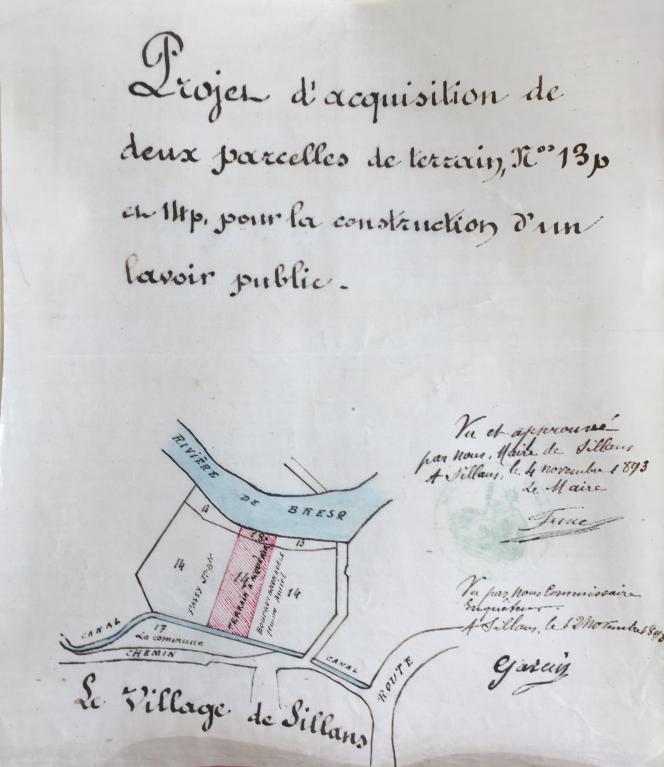 Projet d'acquisition de
deux parcelles de terrain, Nos 13p
et 14p. pour la construction d'un
lavoir public.
Vu et approuvé
par nous, Maire de Sillans
A Sillans, le 4 novembre 1893
Le Maire
RIVIÈRE DE BRESQ
13
13
13
14
14
14
TERRAIN A ACQUÉRIR
Vu par nous Commissaire
Enquêteur
A Sillans, le 12 novembre 1893
Garcin
CANAL
17
La commune
CHEMIN
CANAL
ROUTE
Le Village de Sillans